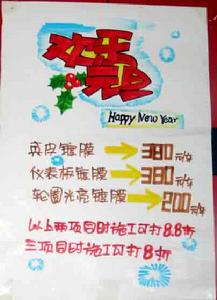 欢乐
元旦
Happy New Year
真皮镀膜 380元/车
仪表板镀膜 380元/车
轮圈光亮镀膜 200元/车
以上两项同时施工可打8.8折
三项同时施工可打8折